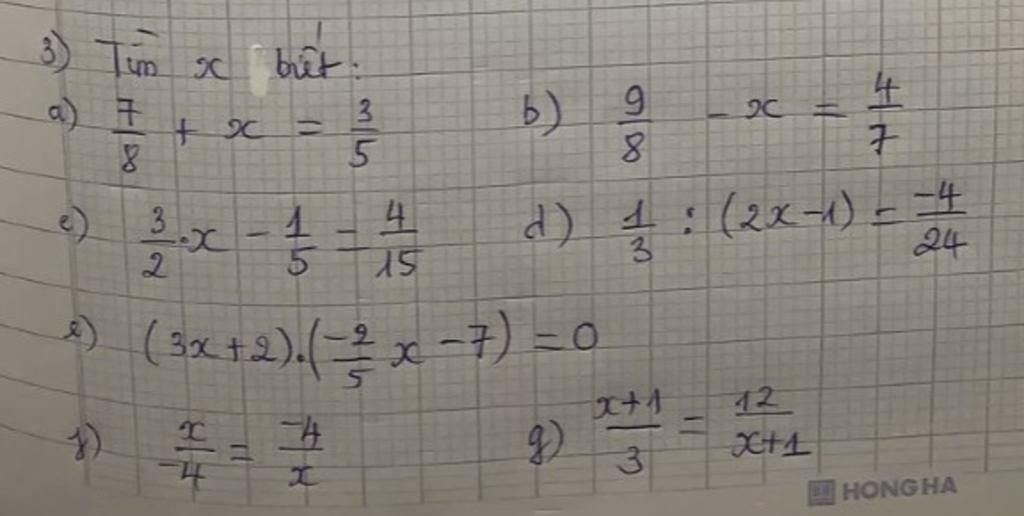 3) Tìm x biết:
a) 7/8 + x = 3/5 b) 9/8 - x = 4/7
c) 3/2 . x - 1/5 = 4/15 d) 1/3 : (2x - 1) = -4/24
e) (3x + 2) . (-2/5 x - 7) = 0
f) x/-4 = -4/x g) x+1/3 = 12/x+1
HONG HA